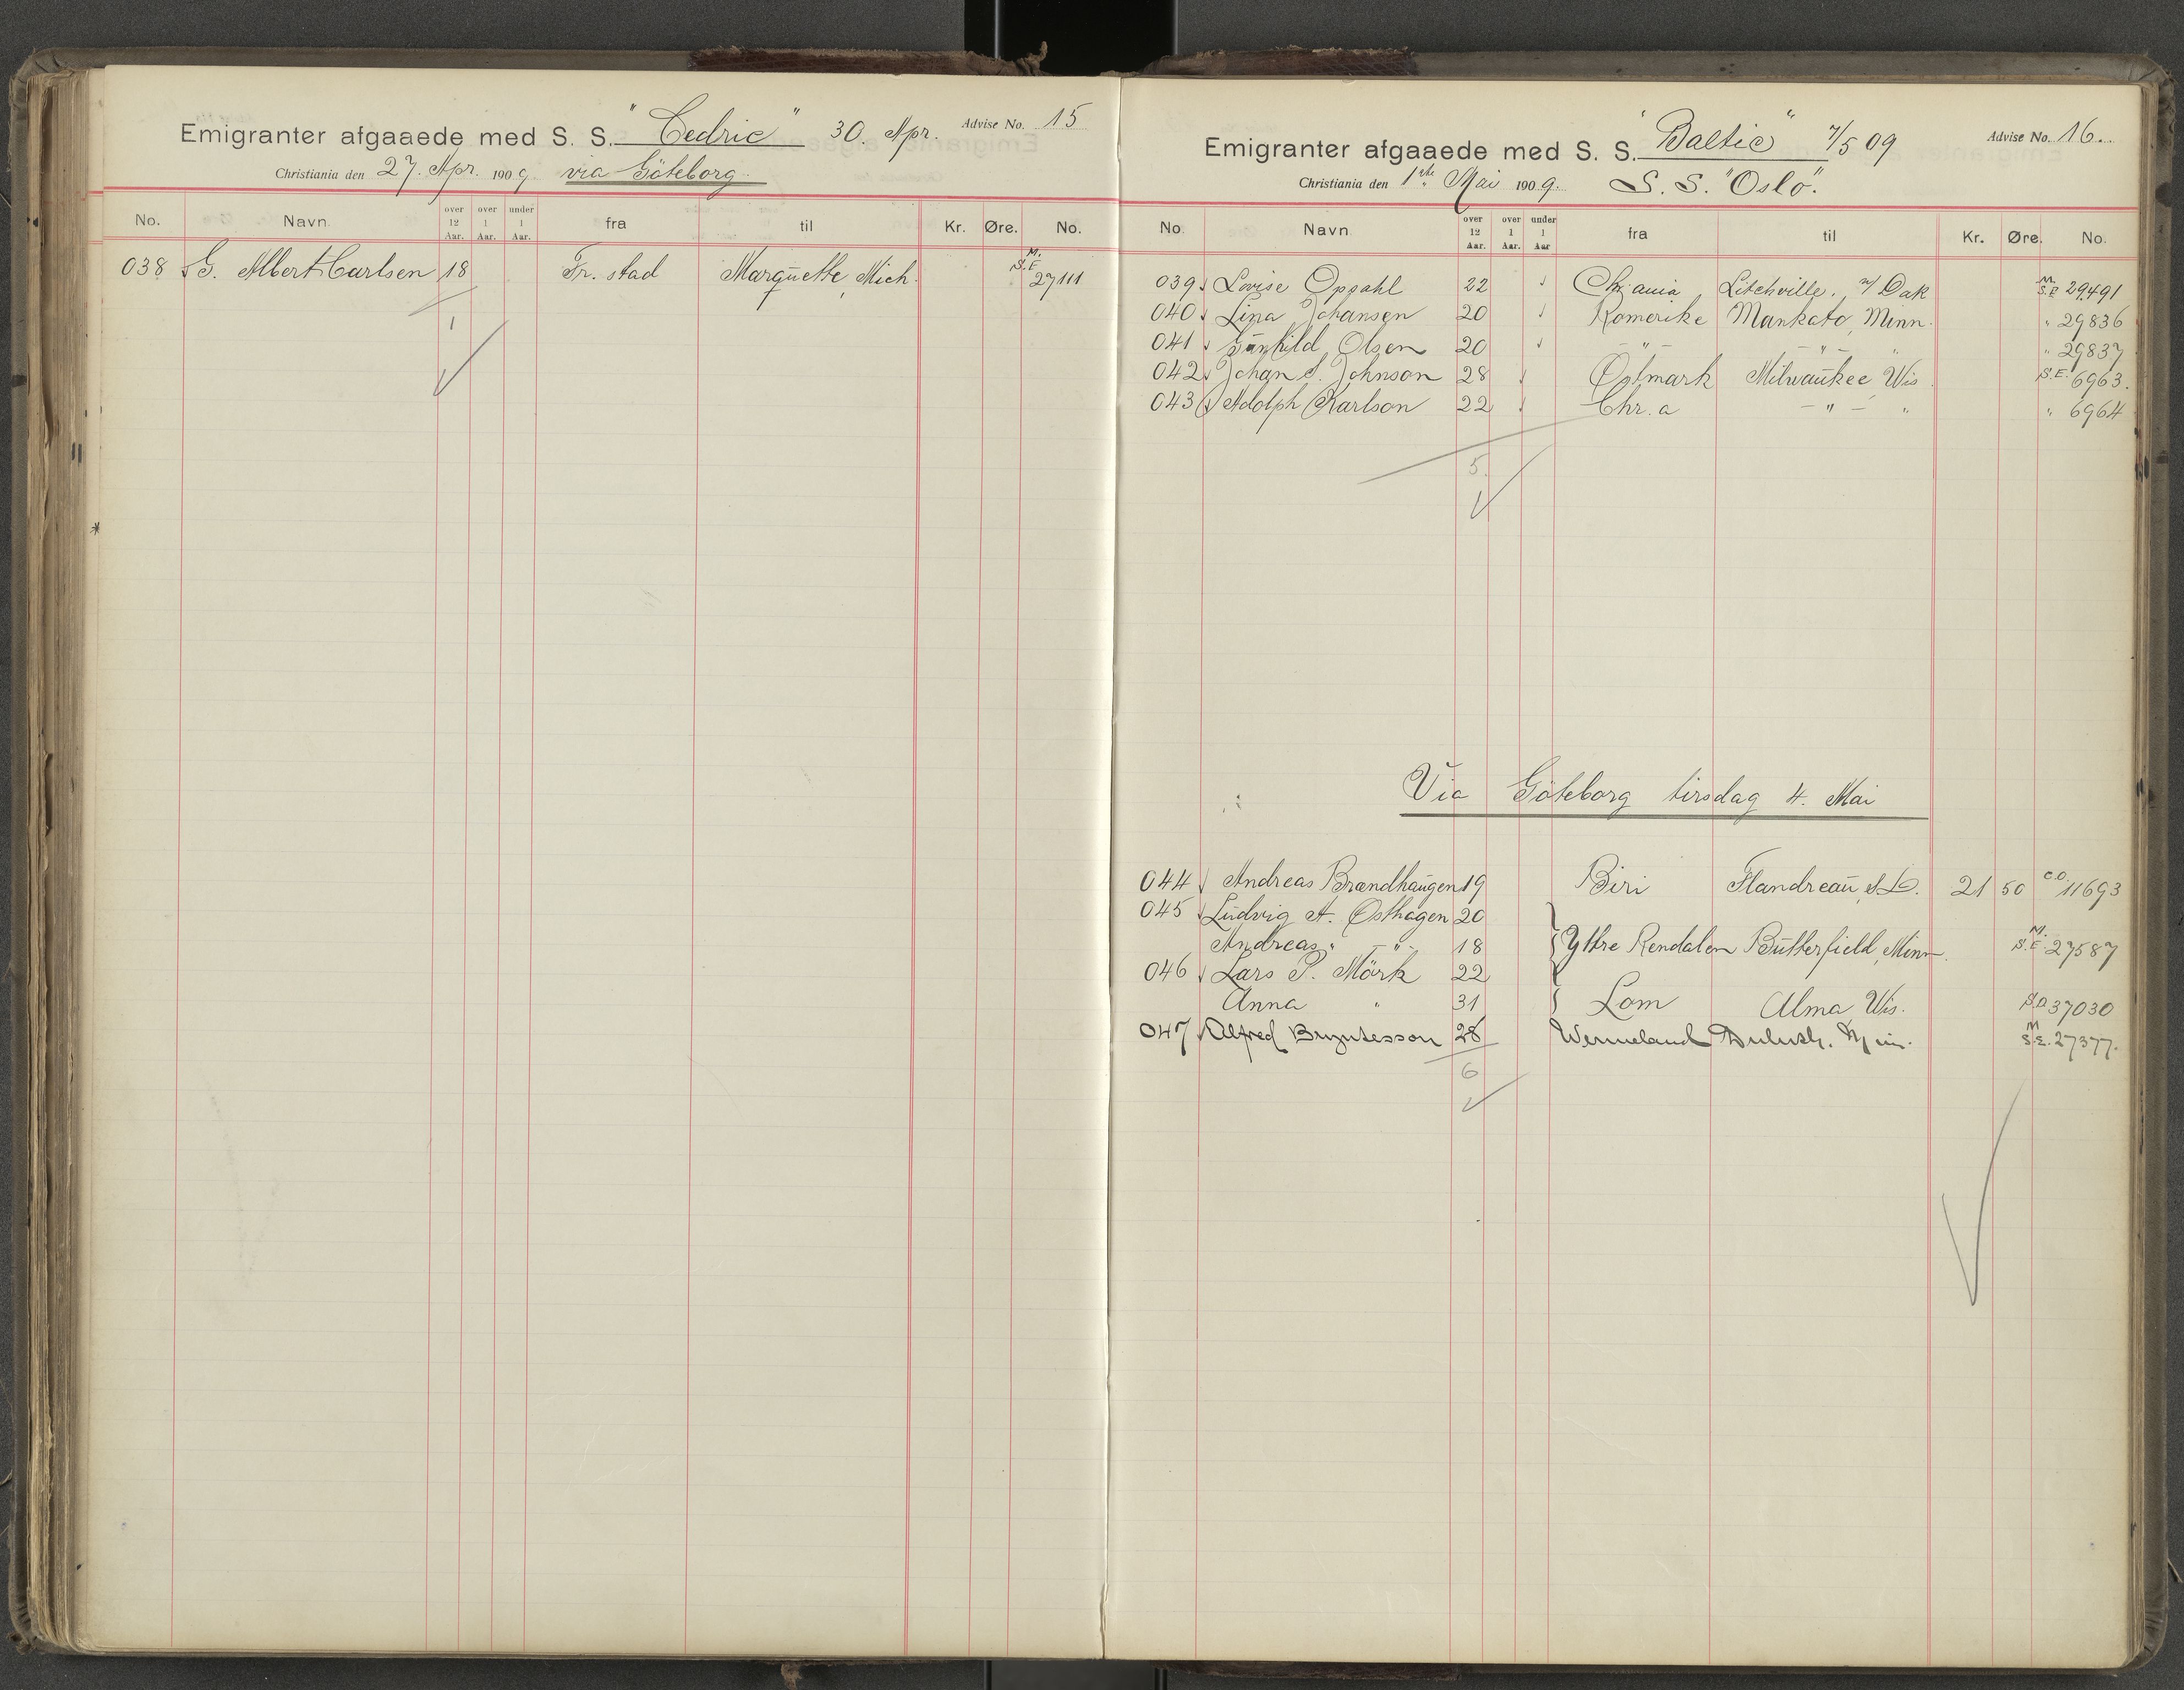 Emigranter afgaaede med S. S. "Cedric" 30. Apr. Advise No. 15
Christiania den 27. Apr. 1909. via Göteborg.
No. Navn. over 12 Aar. over 1 Aar. under 1 Aar. fra til Kr. Øre. No.
038 G. Albert Carlsen 18 Fr. stad Marquette, Mich. M. S.E. 27111
1
Emigranter afgaaede med S. S. "Baltic" 7/5 09 Advise No. 16.
Christiania den 1ste Mai 1909. S. S. "Oslo".
No. Navn over 12 Aar. over 1 Aar. under 1 Aar fra til Kr. Øre. No.
039 Lovise Oppahl 22 Chr.ania Litchville, n/ Dak M. S.E. 29491
040 Lina Johansen 20 Romerike Mankato, Minn. " 29836
041 Gunhild Olsen 20 - " - - " - " " 29837
042 Johan S. Johnson 28 Östmark Milwaukee, Wis S.E. 6963.
043 Adolph Karlson 22 Chr.a - " - " " 6964
5.
Via Göteborg tirsdag 4. Mai
044 Andreas Brandhaugen 19 Biri Flandreau, S.D. 21 50 C.O. 11693
045 Ludvig A. Osthagen 20
Andreas " - " - 18 Yttre Rendalen Butterfield, Minn. M. S.E. 27587
046 Lars P. Mörk 22
Anna " 31 Lom Alma, Wis. S.O. 37030
047 Alfred Bryntesson 28 Wermeland Duluth. Min. M S.E. 27377.
6